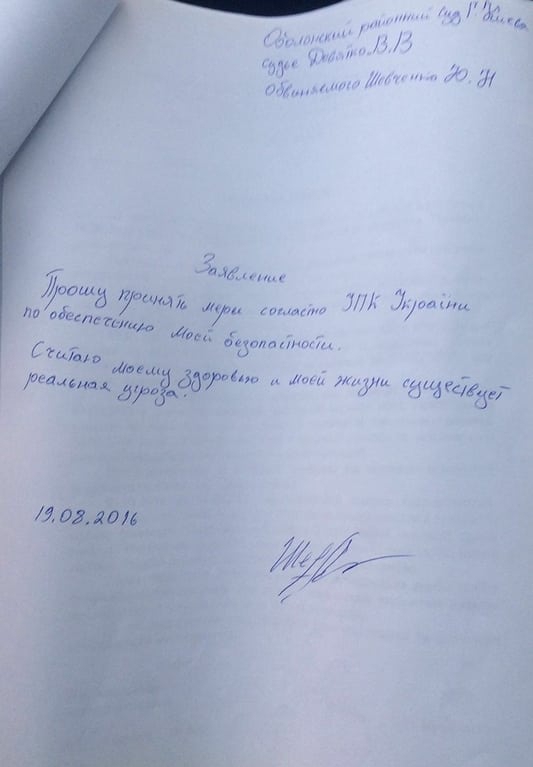 Оболонский районний суд г. Киева
судье Девятко В.В
Обвиняемого Шевченко Ю. Н
Заявление
Прошу принять меры согласто УПК України
по обеспечению моей безопастности.
Считаю моему здоровью и моей жизни существует
реальная угроза.
19.08.2016